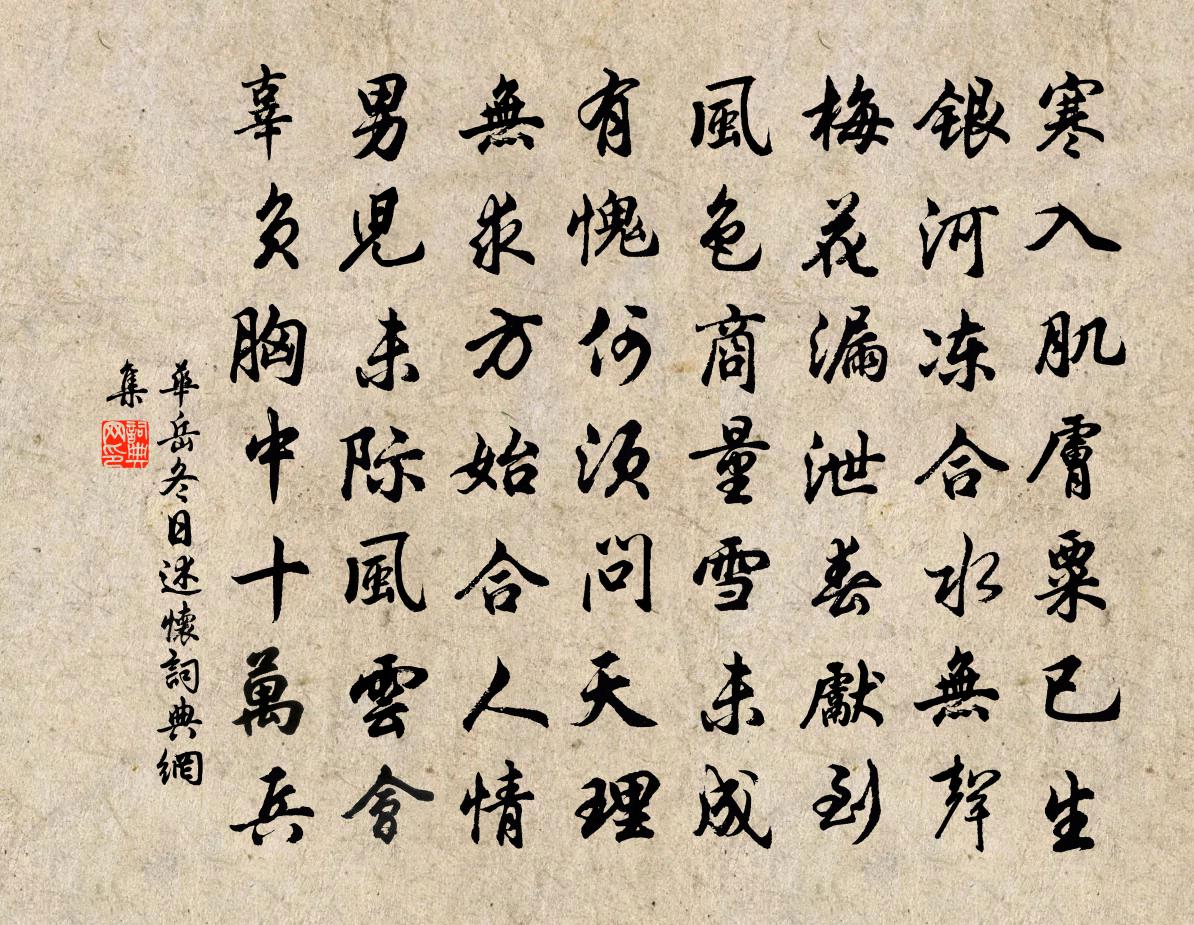 寒入肌膚粟已生
銀河冻合水無聲
梅花漏泄春獻到
風色商量雪未成
有愧何須問天理
無求方始合人情
男児未际風雲會
辜負胸中十萬兵
華岳冬日述懷詞典網
集
詞典
网印